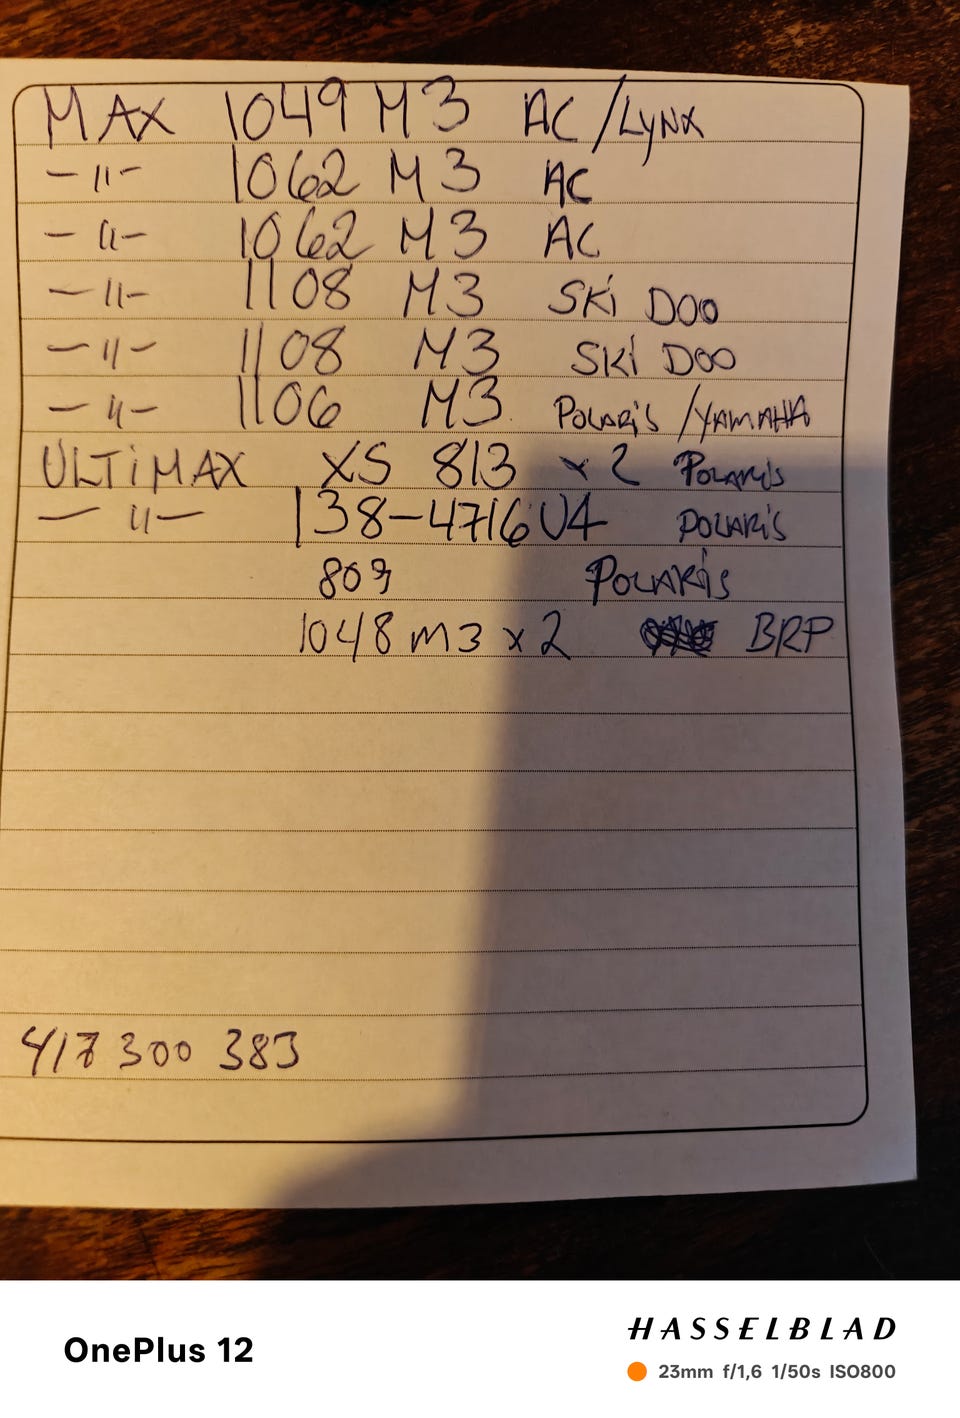 MAX 1049 M3 AC/LYNX
—"— 1062 M3 AC
—"— 1062 M3 AC
—"— 1108 M3 SKi DOO
—"— 1108 M3 SKi DOO
—"— 1106 M3 POLARiS/YAMAHA
ULTiMAX XS 813 x2 POLARiS
—"— 138-4716U4 POLARiS
809 POLARiS
1048 M3 x2 BRP
417 300 383
OnePlus 12
HASSELBLAD
23mm f/1,6 1/50s ISO800